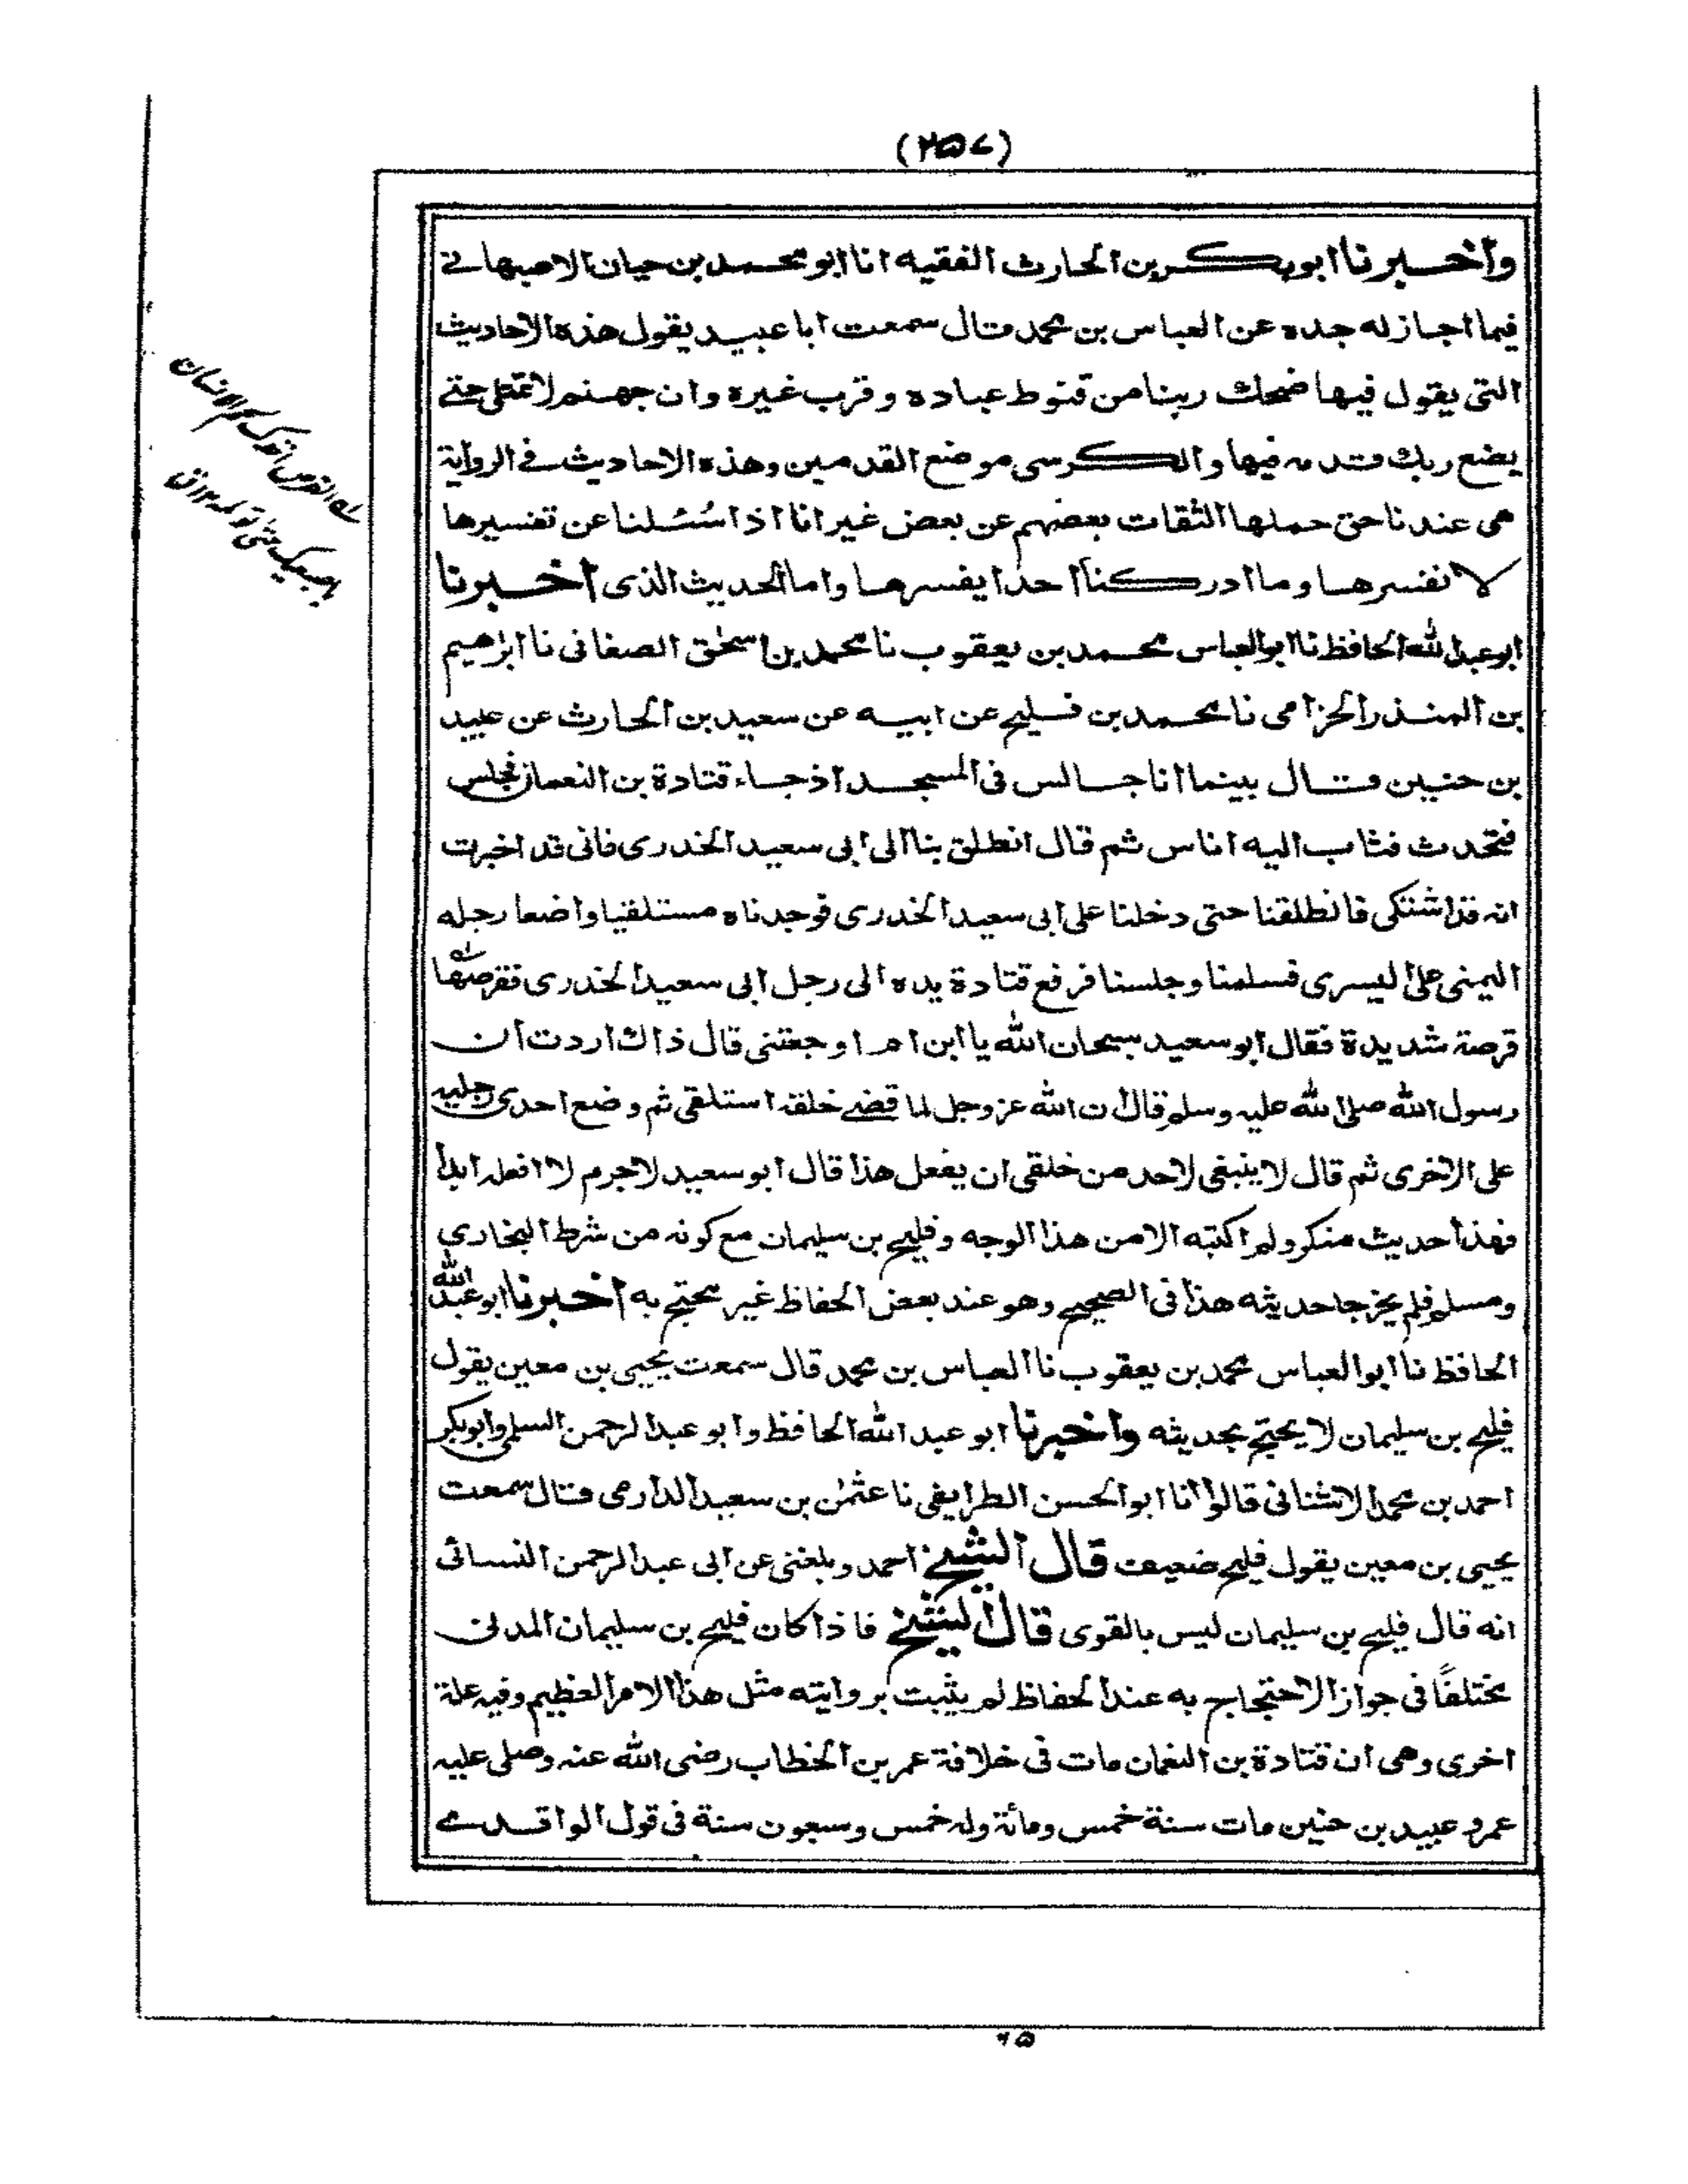 (٢٥٧)
واخبرنا ابو بكر بن الحارث الفقيه انا ابو محمد بن حيان الاصبهانے
فيما اجازله جده عن العباس بن محمد قال سمعت ابا عبيد يقول هذه الاحاديث
التى يقول فيها ضحك ربنا من قنوط عباده وقرب غيره وان جهنم لا تمتلى حتے
يضع ربك قدمه فيها والكرسى موضع القدمين وهذه الاحاديث فے الرواية
هى عندنا حق حملها الثقات بعضهم عن بعض غير انا اذا سُئلنا عن تفسيرها
لا نفسرها وما ادركنا احدا يفسرها واما الحديث الذى اخبرنا
ابو عبد الله الحافظ نا ابو العباس محمد بن يعقوب نا محمد بن اسحٰق الصغانى نا ابرٰهيم
بن المنذر الحزامى نا محمد بن فليح عن ابيه عن سعيد بن الحارث عن عبيد
بن حنين قال بينما انا جالس فى المسجد اذ جاء قتادة بن النعمان فجلس
فتحدث فثاب اليه اناس ثم قال انطلق بنا الى ابى سعيد الخدرى فانى قد اخبرت
انه قد اشتكى فانطلقنا حتى دخلنا على ابى سعيد الخدرى فوجدناه مستلقيا واضعا رجله
اليمنى على اليسرى فسلمنا وجلسنا فرفع قتادة يده الى رجل ابى سعيد الخدرى فقرصها
قرصة شديدة فقال ابو سعيد سبحان الله يا ابن ام اوجعتنى قال ذاك اردت ان
رسول الله صلى الله عليه وسلم قال ان الله عز وجل لما قضے خلقه استلقى ثم وضع احدى رجليه
على الاخرى ثم قال لا ينبغى لاحد من خلقى ان يفعل هذا قال ابو سعيد لا جرم لا افعله ابدا
فهذا حديث منكر ولم اكتبه الا من هذا الوجه وفليح بن سليمان مع كونه من شرط البخارى
ومسلم فلم يخرجا حديثه هذا فى الصحيح وهو عند بعض الحفاظ غير محتج به اخبرنا ابو عبد الله
الحافظ نا ابو العباس محمد بن يعقوب نا العباس بن محمد قال سمعت يحيى بن معين يقول
فليح بن سليمان لا يحتج بحديثه واخبرنا ابو عبد الله الحافظ وابو عبد الرحمن السلمى وابو بكر
احمد بن محمد الاشنانى قالوا انا ابو الحسن الطرايفى نا عثمٰن بن سعيد الدارمى قال سمعت
يحيى بن معين يقول فليح ضعيف قال الشيخ احمد وبلغنى عن ابى عبد الرحمن النسائى
انه قال فليح بن سليمان ليس بالقوى قال الشيخ فاذا كان فليح بن سليمان المدنى
مختلفًا فى جواز الاحتجاج به عند الحفاظ لم يثبت بروايته مثل هذا الامر العظيم وفيه علة
اخرى وهى ان قتادة بن النعمان مات فى خلافة عمر بن الخطاب رضى الله عنه وصلى عليه
عمر وعبيد بن حنين مات سنة خمس ومائة وله خمس وسبعون سنة فى قول الواقدے
٦٥